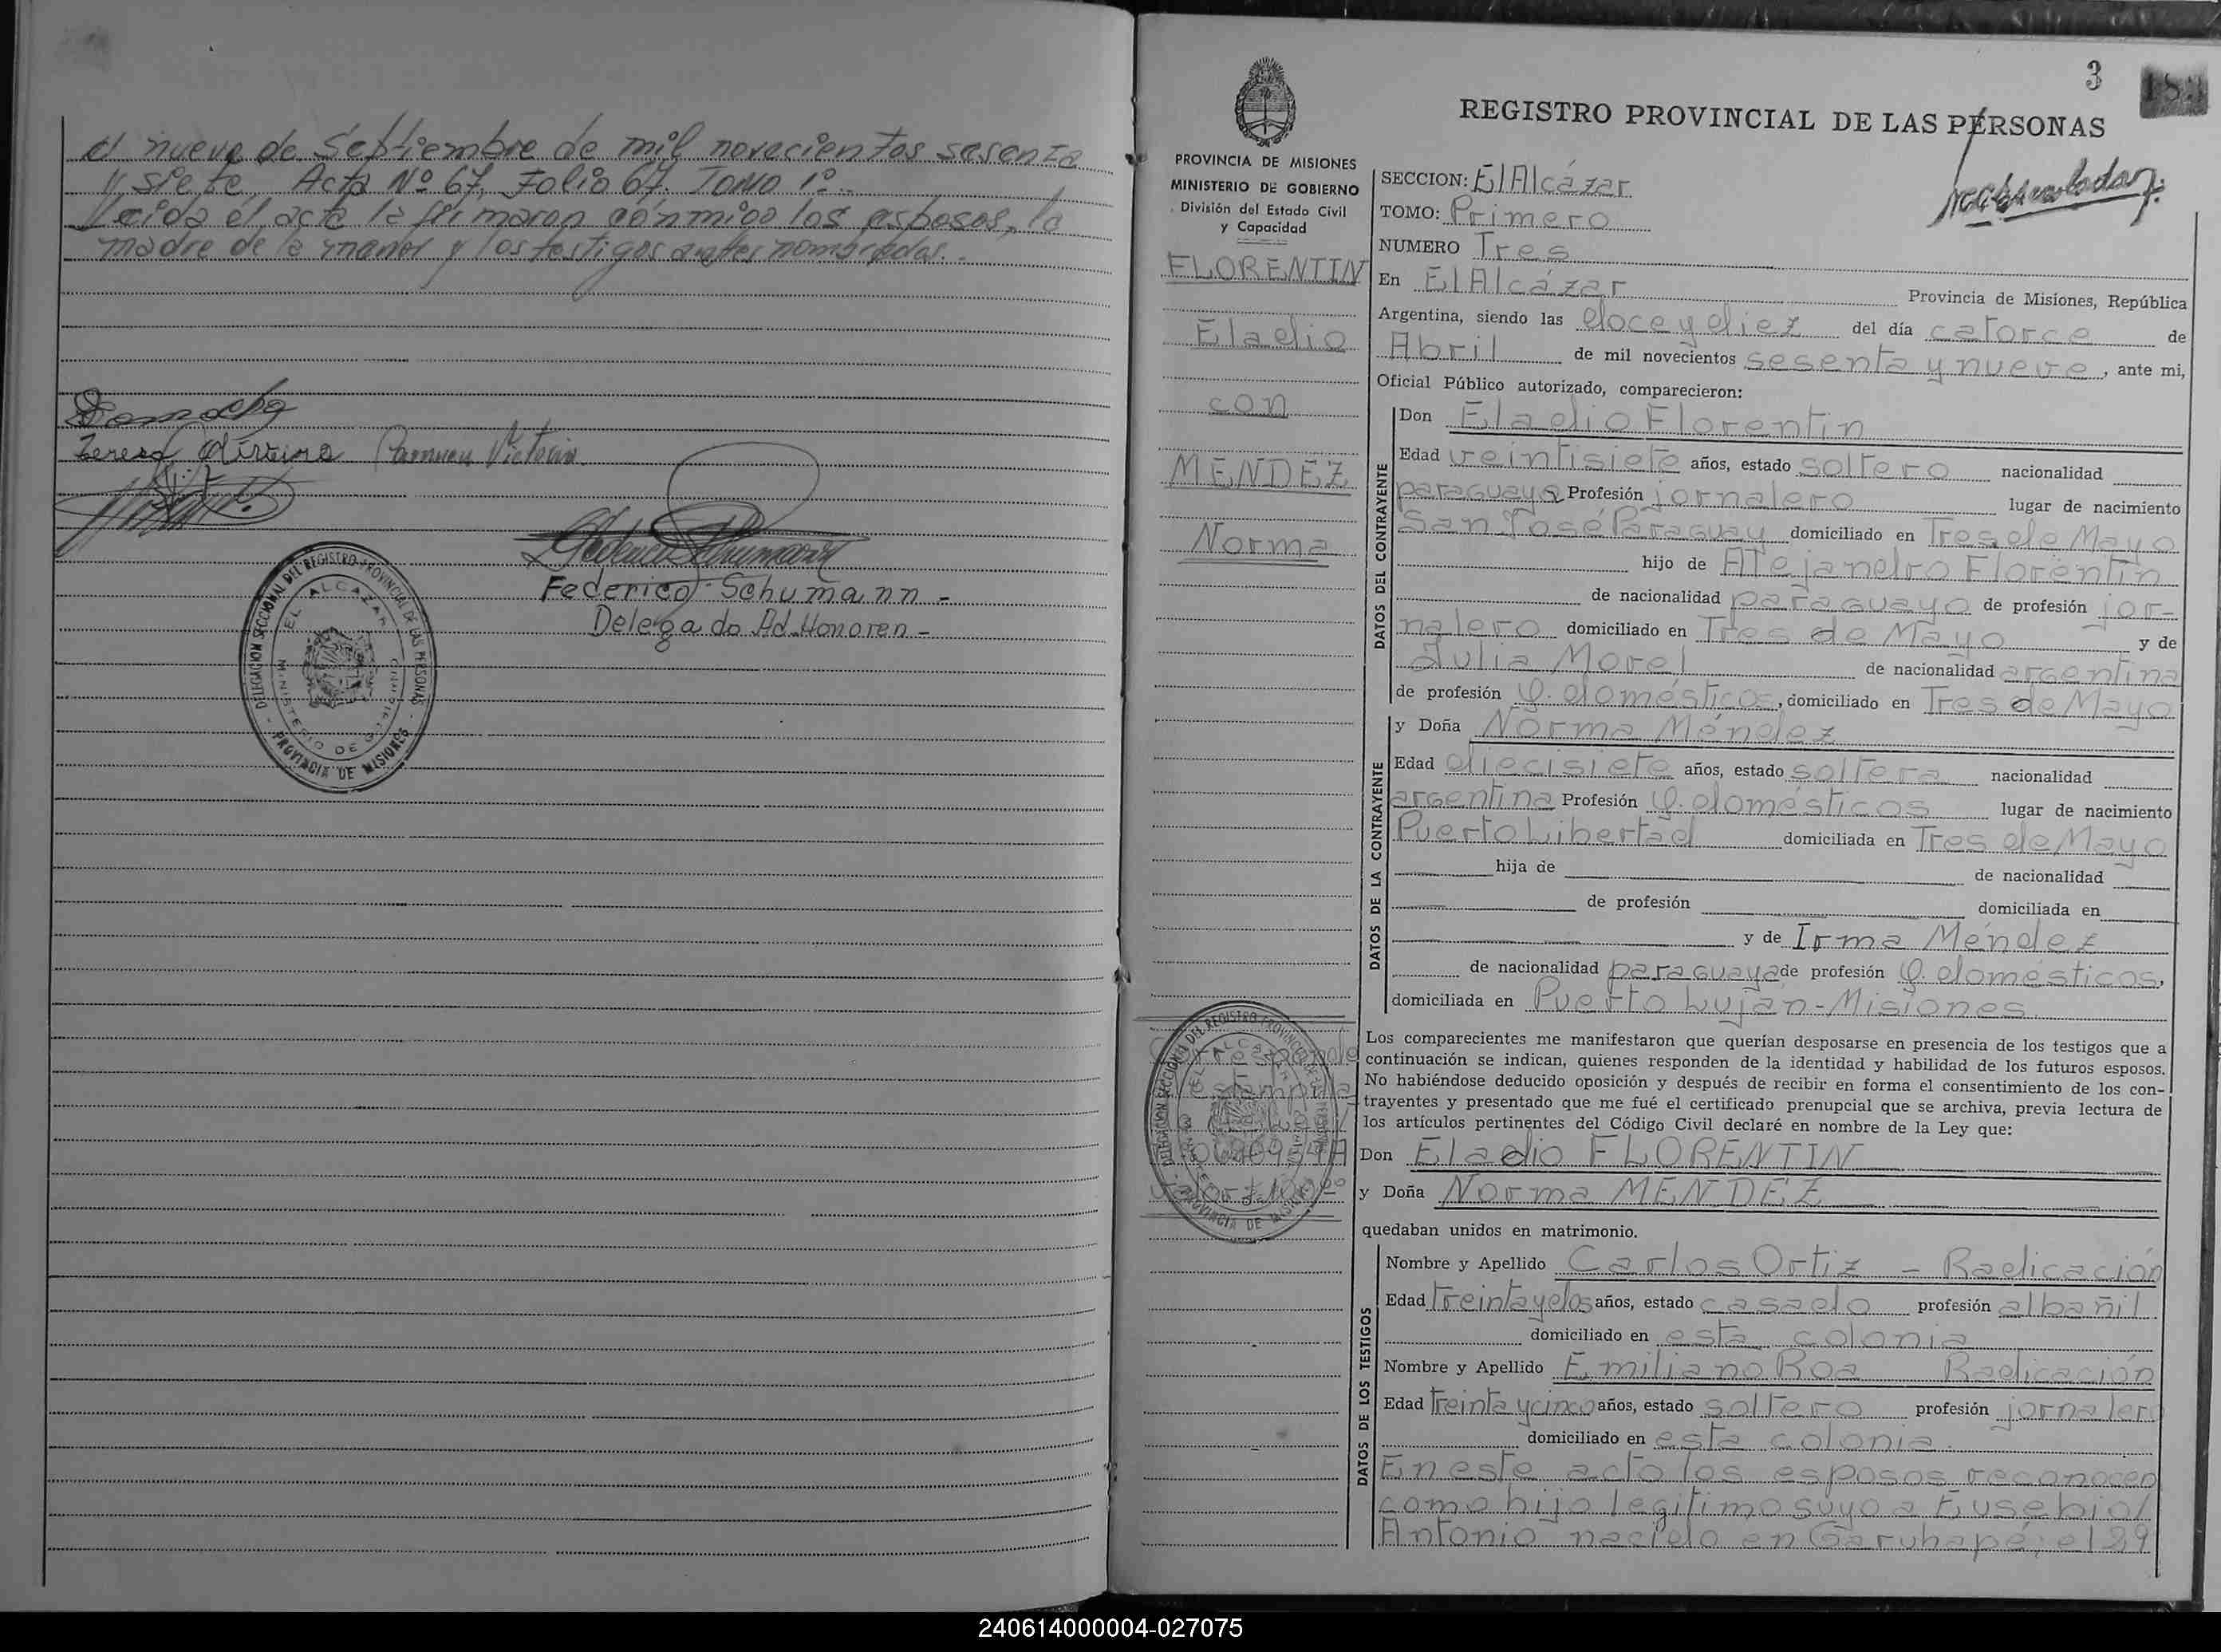 el nueve de Septiembre de mil novecientos sesenta
y siete, Acta Nº 67, Folio 67. Tomo 1º.-
Leida el acta la firmaron conmigo los esposos, la
madre de la menor y los testigos antes nombrados.-
Teresa Carmen Victoria
Federico Schumann
Federico Schumann -
Delegado Ad-Honoren -
DELEGACION SECCIONAL DEL REGISTRO PROVINCIAL DE LAS PERSONAS
EL ALCAZAR
MINISTERIO DE GOBIERNO
PROVINCIA DE MISIONES
3
REGISTRO PROVINCIAL DE LAS PERSONAS
PROVINCIA DE MISIONES
MINISTERIO DE GOBIERNO
División del Estado Civil
y Capacidad
FLORENTIN
Eladio
con
MENDEZ
Norma
SECCION: El Alcázar
TOMO: Primero
NUMERO Tres
En El Alcázar Provincia de Misiones, República
Argentina, siendo las doce y diez del día catorce de
Abril de mil novecientos sesenta y nueve, ante mi,
Oficial Público autorizado, comparecieron:
DATOS DEL CONTRAYENTE
Don Eladio Florentin
Edad veintisiete años, estado soltero nacionalidad
paraguaya Profesión jornalero lugar de nacimiento
San José Paraguay domiciliado en Tres de Mayo
hijo de Alejandro Florentin
de nacionalidad paraguayo de profesión jor-
nalero domiciliado en Tres de Mayo y de
Julia Morel de nacionalidad argentina
de profesión Q. domésticos, domiciliado en Tres de Mayo
DATOS DE LA CONTRAYENTE
y Doña Norma Méndez
Edad diecisiete años, estado soltera nacionalidad
argentina Profesión Q. domésticos lugar de nacimiento
Puerto Libertad domiciliada en Tres de Mayo
hija de de nacionalidad
de profesión domiciliada en
y de Irma Méndez
de nacionalidad paraguaya de profesión Q. domésticos,
domiciliada en Puerto Luján - Misiones
Los comparecientes me manifestaron que querían desposarse en presencia de los testigos que a
continuación se indican, quienes responden de la identidad y habilidad de los futuros esposos.
No habiéndose deducido oposición y después de recibir en forma el consentimiento de los con-
trayentes y presentado que me fué el certificado prenupcial que se archiva, previa lectura de
los artículos pertinentes del Código Civil declaré en nombre de la Ley que:
Corresponde
estampilla
Don Eladio FLORENTIN
y Doña Norma MENDEZ
quedaban unidos en matrimonio.
DELEGACION SECCIONAL DEL REGISTRO PROVINCIAL
PROVINCIA DE MISIONES
DATOS DE LOS TESTIGOS
Nombre y Apellido Carlos Ortiz - Radicación
Edad treinta y dos años, estado casado profesión albañil
domiciliado en esta colonia
Nombre y Apellido Emiliano Roa Radicación
Edad treinta y cinco años, estado soltero profesión jornalero
domiciliado en esta colonia.
En este acto los esposos reconocen
como hijo legitimo suyo a Eusebio
Antonio nacido en Garuhapé, el 29
240614000004-027075